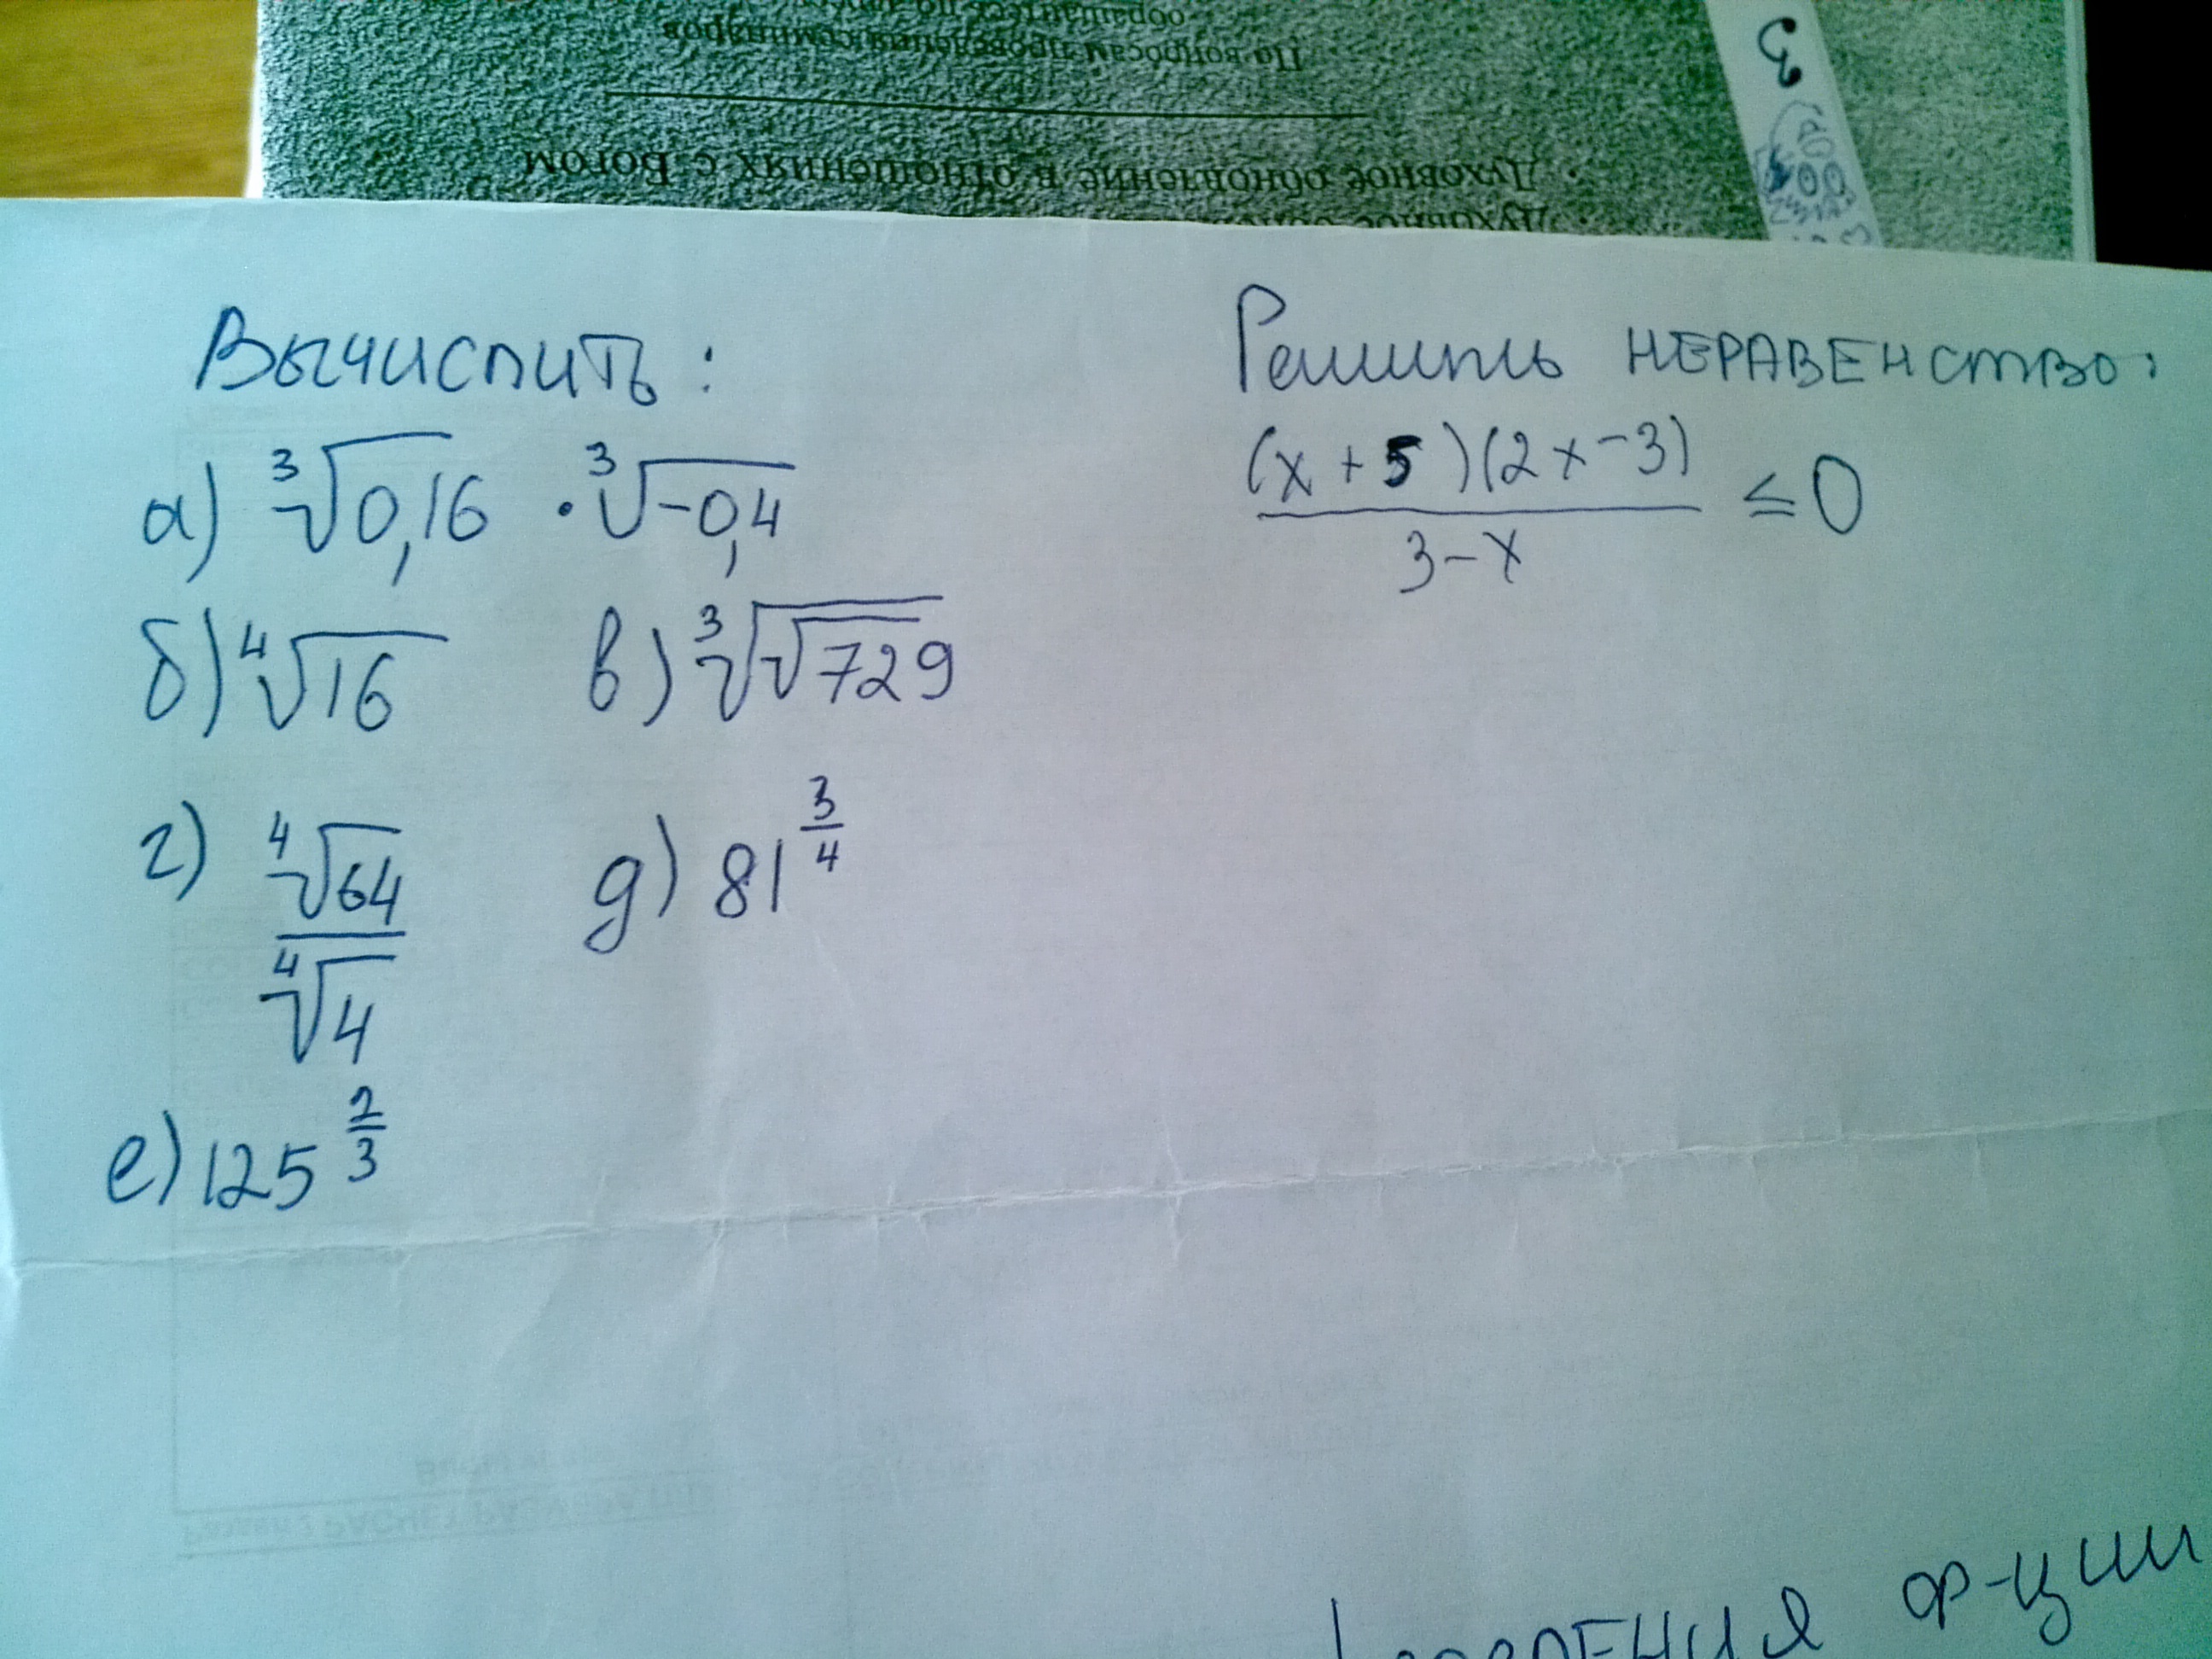 По вопросам проведения семинаров
• Духовное обновление в отношениях с Богом
Вычислить:
а) ∛0,16 · ∛-0,4
б) ∜16 в) ∛√729
г) ∜64 / ∜4 д) 81^(3/4)
е) 125^(2/3)
Решить неравенство:
(x + 5)(2x - 3) / (3 - x) ≤ 0
ф-ции